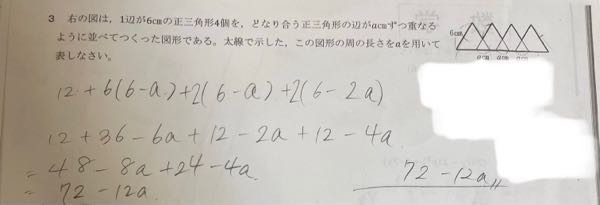 3 右の図は，1辺が6cmの正三角形4個を，となり合う正三角形の辺がacmずつ重なる
ように並べてつくった図形である。太線で示した，この図形の周の長さをaを用いて
表しなさい。
6cm
acm acm acm
12 + 6(6-a)+2(6-a)+2(6-2a)
12+36-6a+12-2a+12-4a
=48-8a+24-4a
=72-12a
72-12a〃